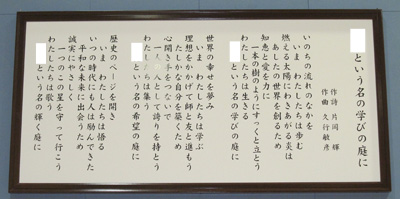 という名の学びの庭に
作詩 片岡 輝
作曲 久行敏彦
いのちの流れのなかを
いま わたしたちは歩む
燃える太陽にわきあがる炎は
あしたの世界を創るため
知恵と愛を力に
一本の樹のようにすっくと立とう
わたしたちは生きる
という名の学びの庭に
世界の幸せを夢み
いま わたしたちは学ぶ
理想をかかげて師と友と進もう
たしかな自分を築くため
心開き手をつないで
人として誇りを持とう
わたしたちは集う
という名の希望の庭に
歴史のページを開き
いま わたしたちは悟る
いつの時代にも人は励んできた
平和な未来に出会うため
誠実にやさしく
一つのこの星を守って行こう
わたしたちは歌う
という名の輝く庭に